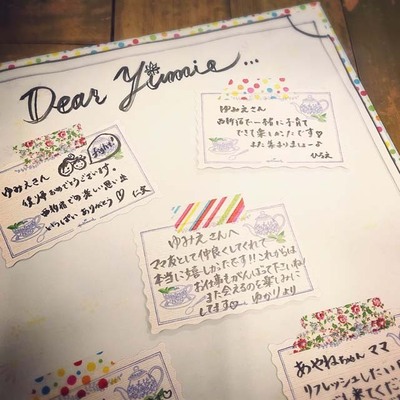 Dear Yumie...
ゆみえさん
西新宿で一緒に子育て
できて楽しかったです♡
また集まりましょーよ
ひろえ
fight!
ゆみえさん
復帰おめでとうございます。
西新宿での楽しい思い出
いっぱいありがとう♡
ゆみえさんへ
ママ友として仲良くしてくれて
本当に嬉しかったです!!これからは
お仕事もがんばって下さいね!
また会えるのを楽しみに
してます♡ ゆかりより
あやねちゃんママ
リフレッシュしたい